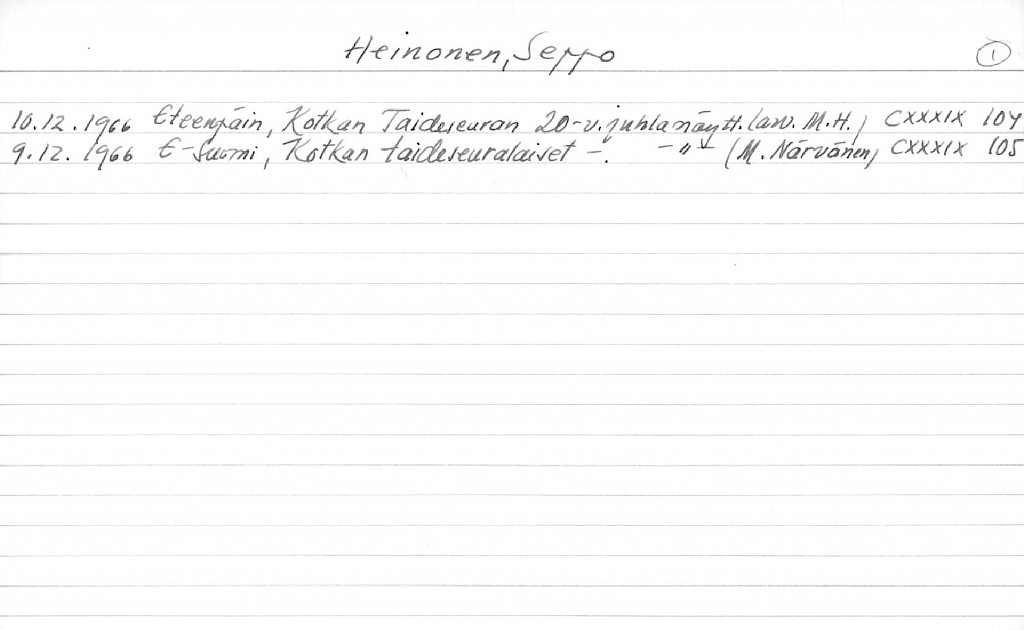 Heinonen, Seppo 1
10.12.1966 Eteenpäin, Kotkan Taideseuran 20-v. juhlanäytt. (arv. M.H.) CXXXIX 104
9.12.1966 E-Suomi, Kotkan taideseuralaiset -. -"- (M. Närvänen) CXXXIX 105